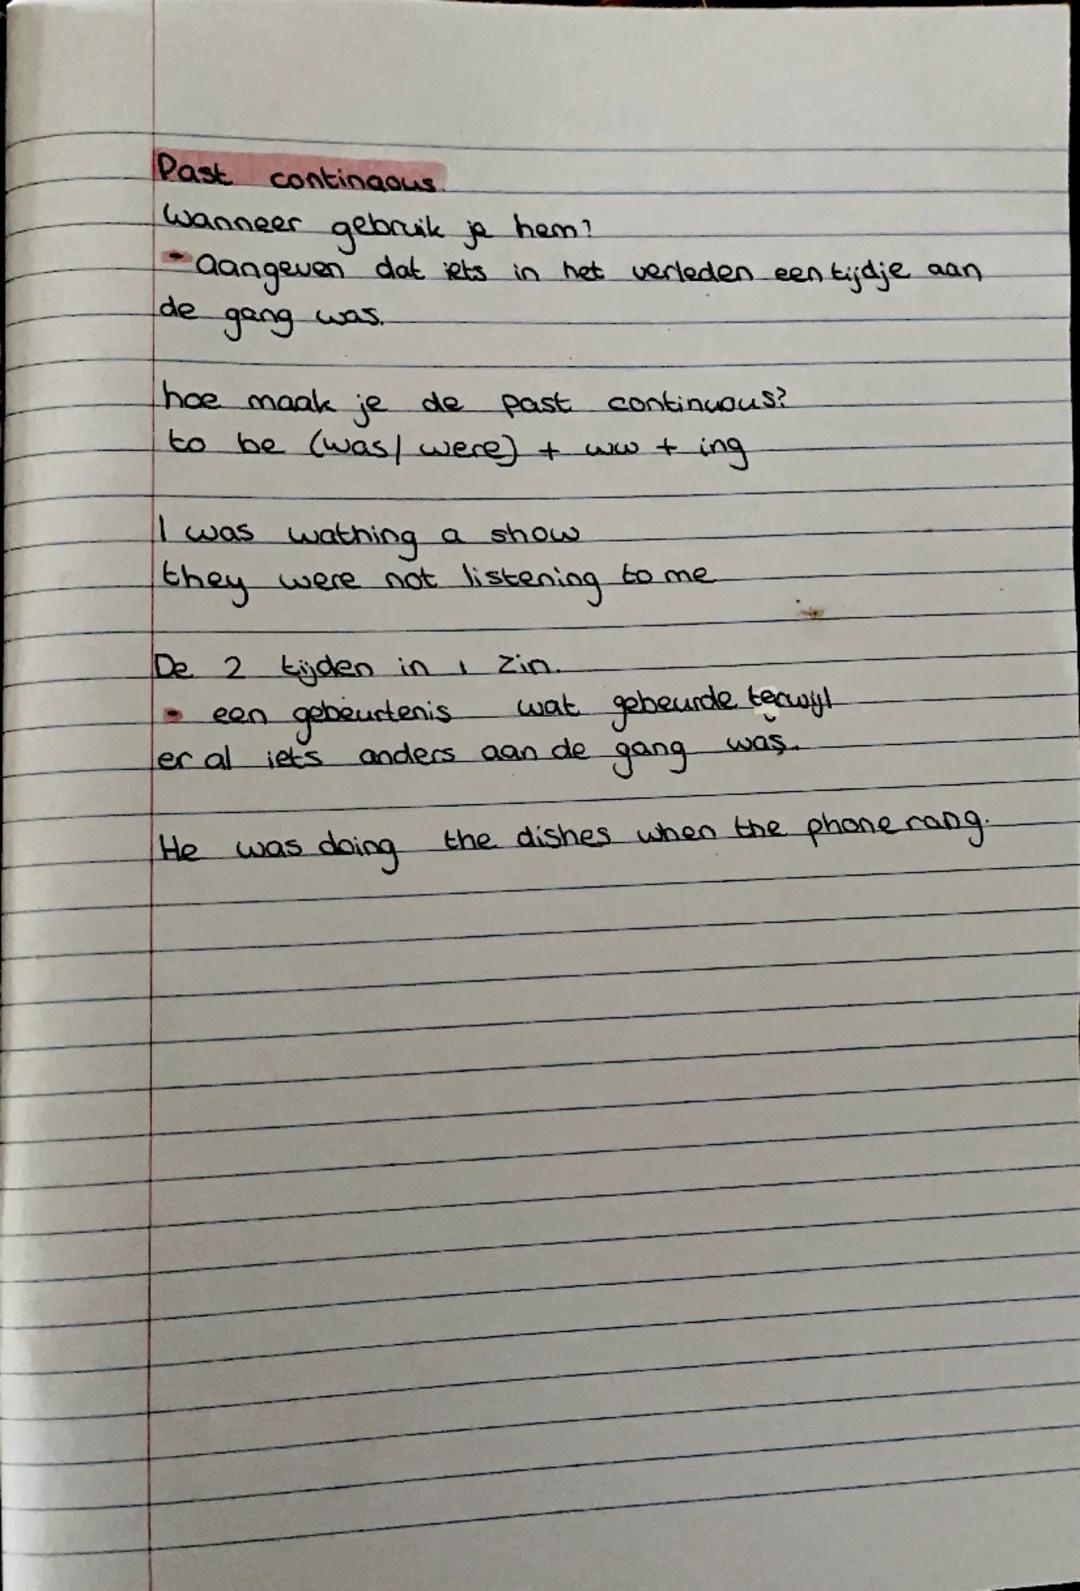 Past continaous.
Wanneer gebruik je hem?
- Aangeven dat iets in het verleden een tijdje aan
de gang was.
hoe maak je de past continuous?
to be (was/were) + ww + ing
I was wathing a show
they were not listening to me
De 2 tijden in 1 zin.
- een gebeurtenis wat gebeurde terwijl
er al iets anders aan de gang was.
He was doing the dishes when the phone rang.